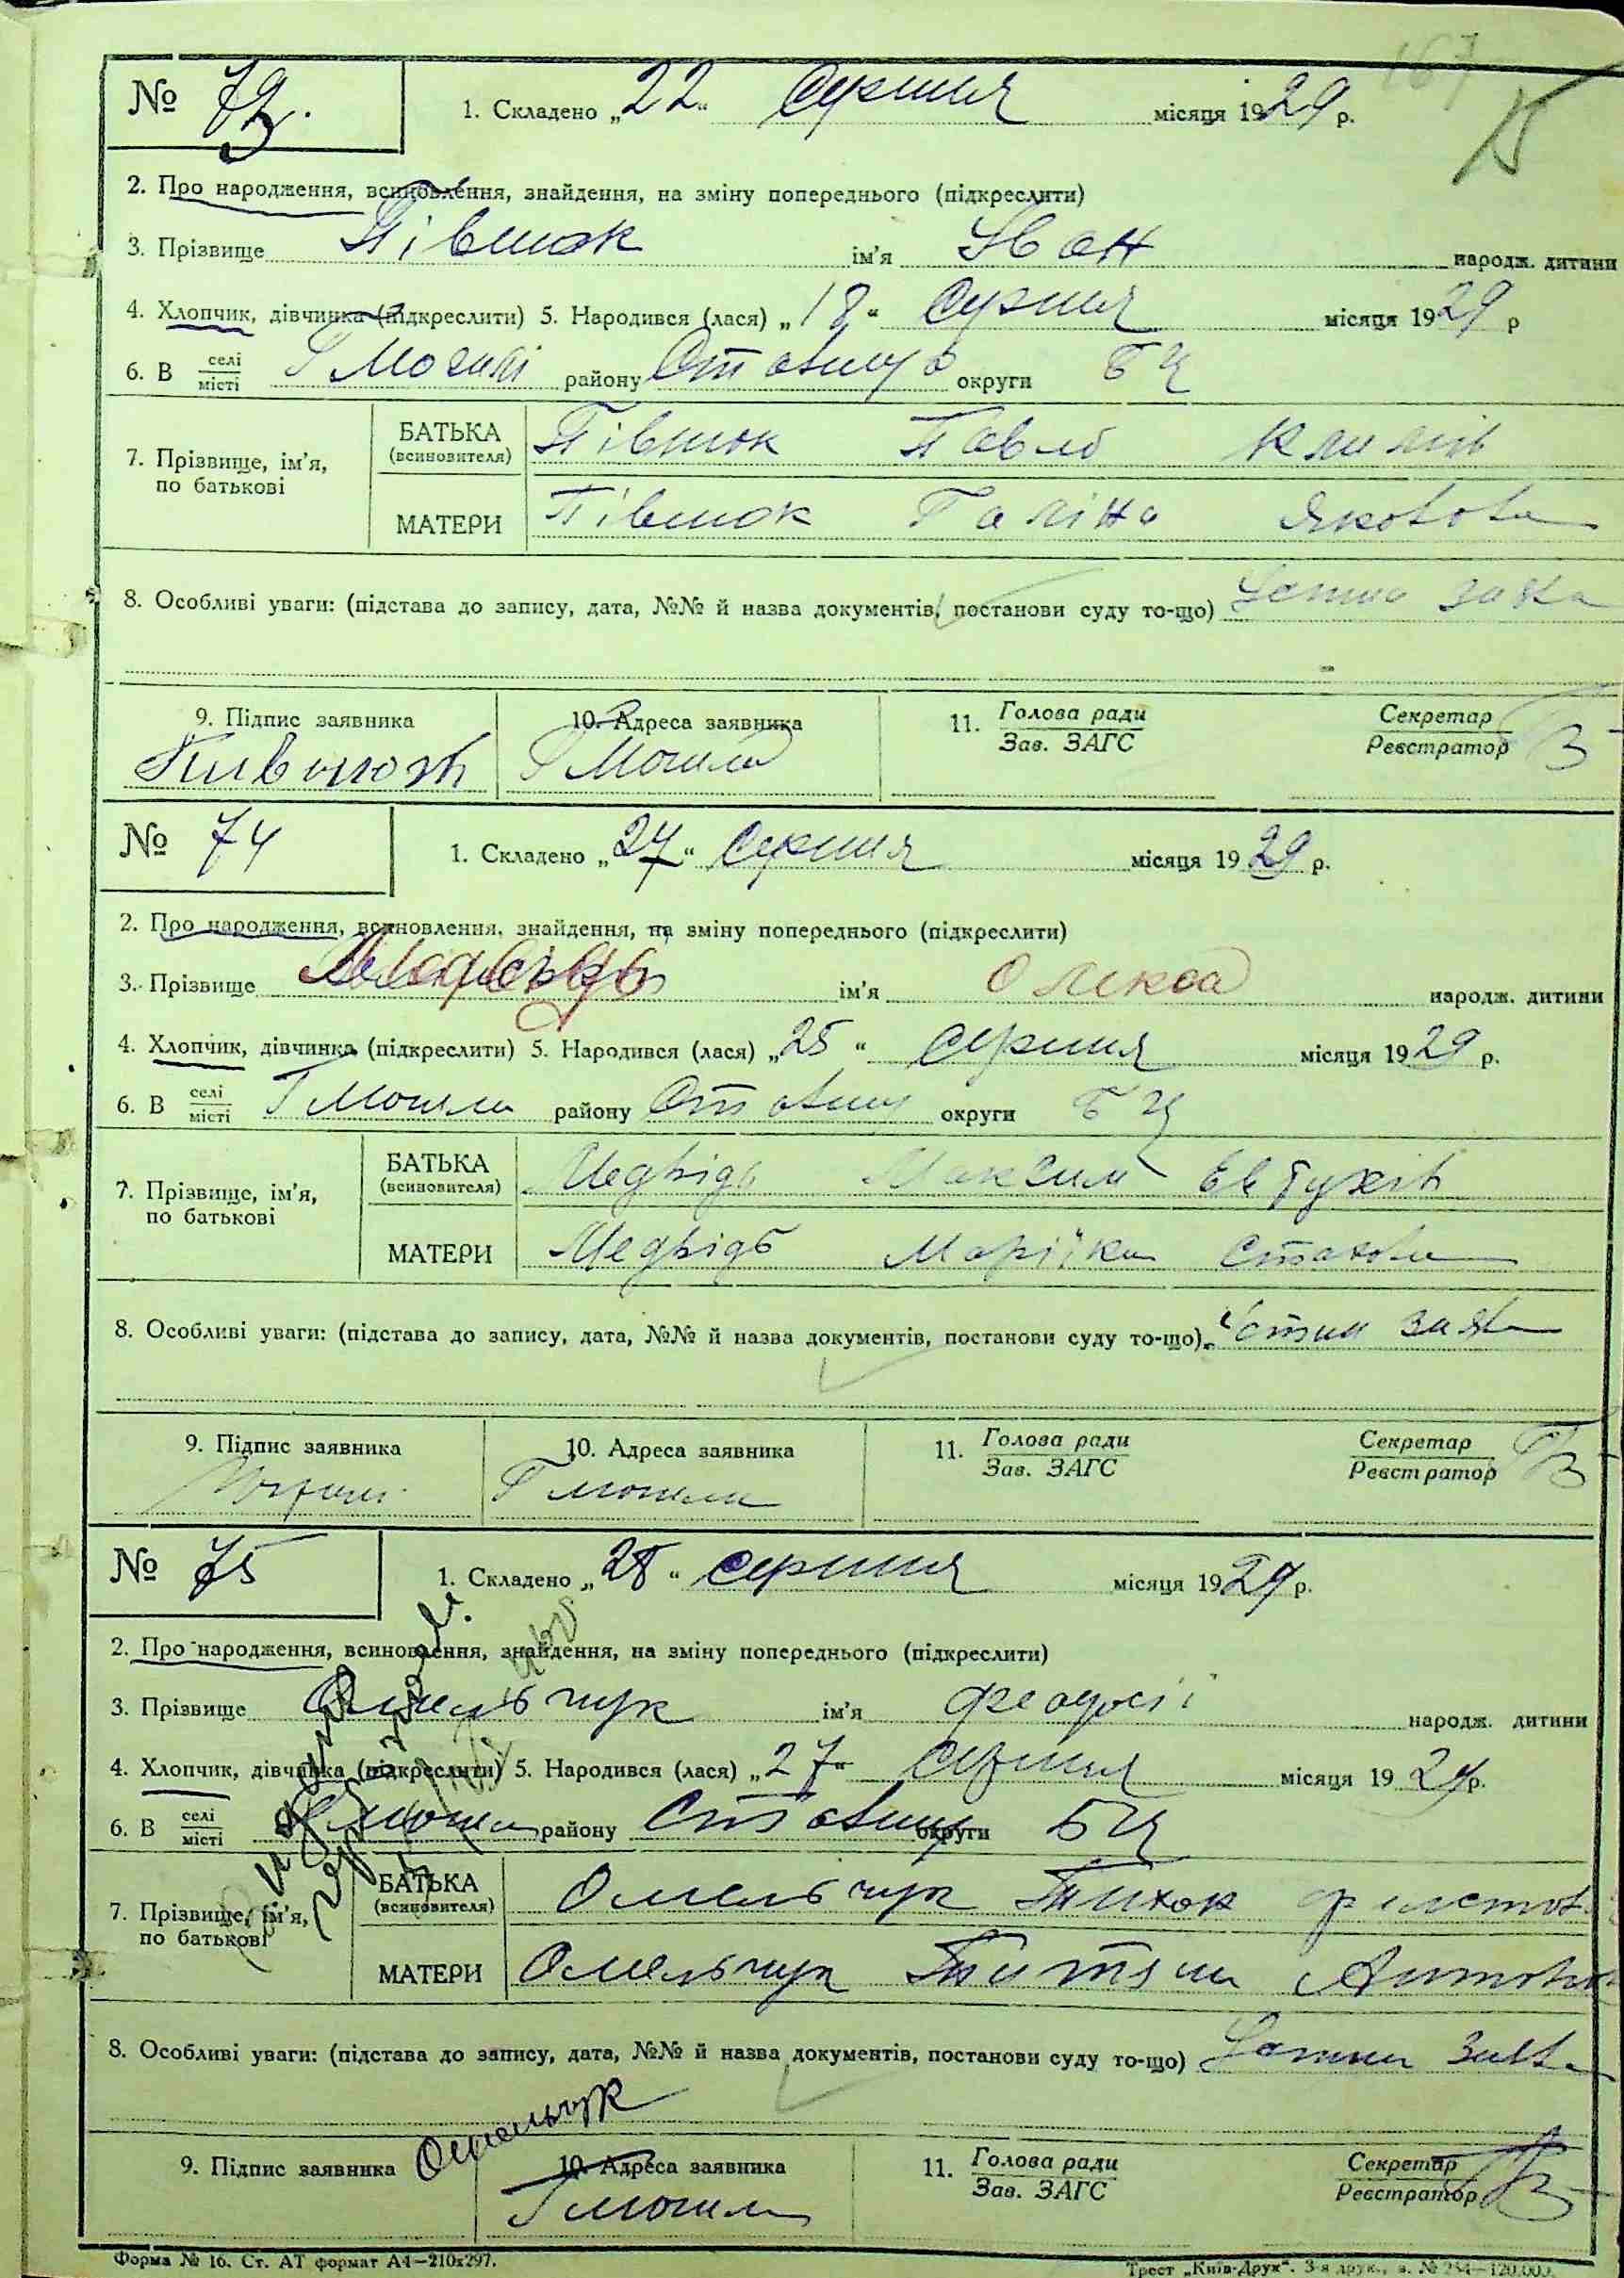 167
№ 72. 1. Складено „22" серпня місяця 1929 р.
2. Про народження, всиновлення, знайдення, на зміну попереднього (підкреслити)
3. Прізвище Півнюк ім'я Іван народж. дитини
4. Хлопчик, дівчинка (підкреслити) 5. Народився (лася) „18" серпня місяця 1929 р
6. В селі/місті Г Могилі району Ставище округи БЦ
7. Прізвище, ім'я, по батькові
БАТЬКА (всиновителя) Півнюк Павло
МАТЕРИ Півнюк Галіна Яковова
8. Особливі уваги: (підстава до запису, дата, №№ й назва документів, постанови суду то-що) Устна заява
9. Підпис заявника 10. Адреса заявника 11. Голова ради Секретар
Зав. ЗАГС Реєстратор
Г Могила
№ 74 1. Складено „27" серпня місяця 1929 р.
2. Про народження, всиновлення, знайдення, на зміну попереднього (підкреслити)
3. Прізвище Медвідь ім'я Олекса народж. дитини
4. Хлопчик, дівчинка (підкреслити) 5. Народився (лася) „25" серпня місяця 1929 р.
6. В селі/місті Г Могила району Ставище округи БЦ
7. Прізвище, ім'я, по батькові
БАТЬКА (всиновителя) Медвідь Максим Евтухів
МАТЕРИ Медвідь Марійка Стахова
8. Особливі уваги: (підстава до запису, дата, №№ й назва документів, постанови суду то-що) Устна заява
9. Підпис заявника 10. Адреса заявника 11. Голова ради Секретар
Зав. ЗАГС Реєстратор
Г Могила
№ 75 1. Складено „28" серпня місяця 1929 р.
2. Про народження, всиновлення, знайдення, на зміну попереднього (підкреслити)
3. Прізвище Омельчук ім'я Феодосій народж. дитини
4. Хлопчик, дівчинка (підкреслити) 5. Народився (лася) „27" серпня місяця 1929 р.
6. В селі/місті Г Могила району Ставище округи БЦ
7. Прізвище, ім'я, по батькові
БАТЬКА (всиновителя) Омельчук Тихон
МАТЕРИ Омельчук Титяна Антонова
8. Особливі уваги: (підстава до запису, дата, №№ й назва документів, постанови суду то-що) Устна заява
Омельчук
9. Підпис заявника 10. Адреса заявника 11. Голова ради Секретар
Зав. ЗАГС Реєстратор
Г Могила
Форма № 16. Ст. АТ формат А4—210х297.
Трест „Київ-Друк". 3-я друк., з. № 254—120.000.